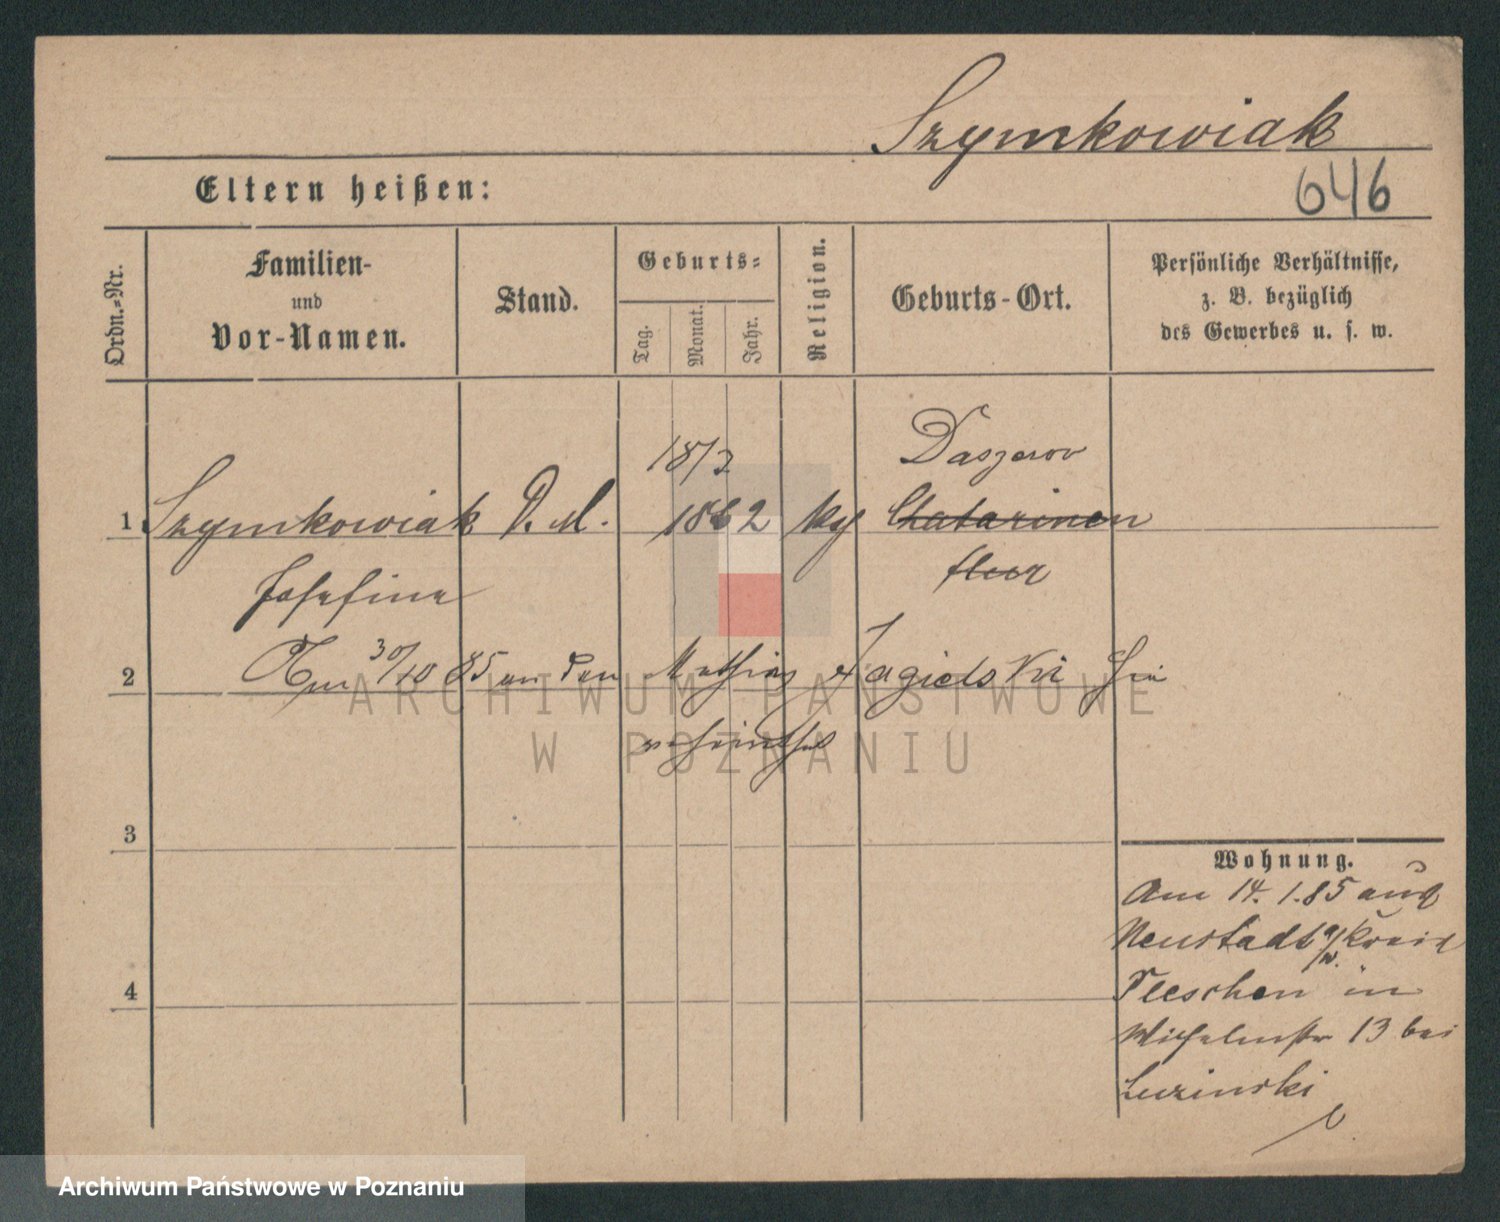 Szymkowiak
Eltern heißen:
646
Ordn.-Nr.
Familien-
und
Vor-Namen.
Stand.
Geburts-
Tag.
Monat.
Jahr.
Religion.
Geburts-Ort.
Persönliche Verhältnisse,
z. B. bezüglich
des Gewerbes u. s. w.
18/3
Daszerow
1 Szymkowiak D. M. 1862 kg Chatarinen
Josefine
2 Am 30/10 85 an den Mathias Jagielski hie
verheirathet
ARCHIWUM PAŃSTWOWE
W POZNANIU
3
Wohnung.
Am 14. 1. 85 aus
Neustadt a/W. Kreis
4
Pleschen in
Wilhelmstr 13 bei
Luzinski
Archiwum Państwowe w Poznaniu